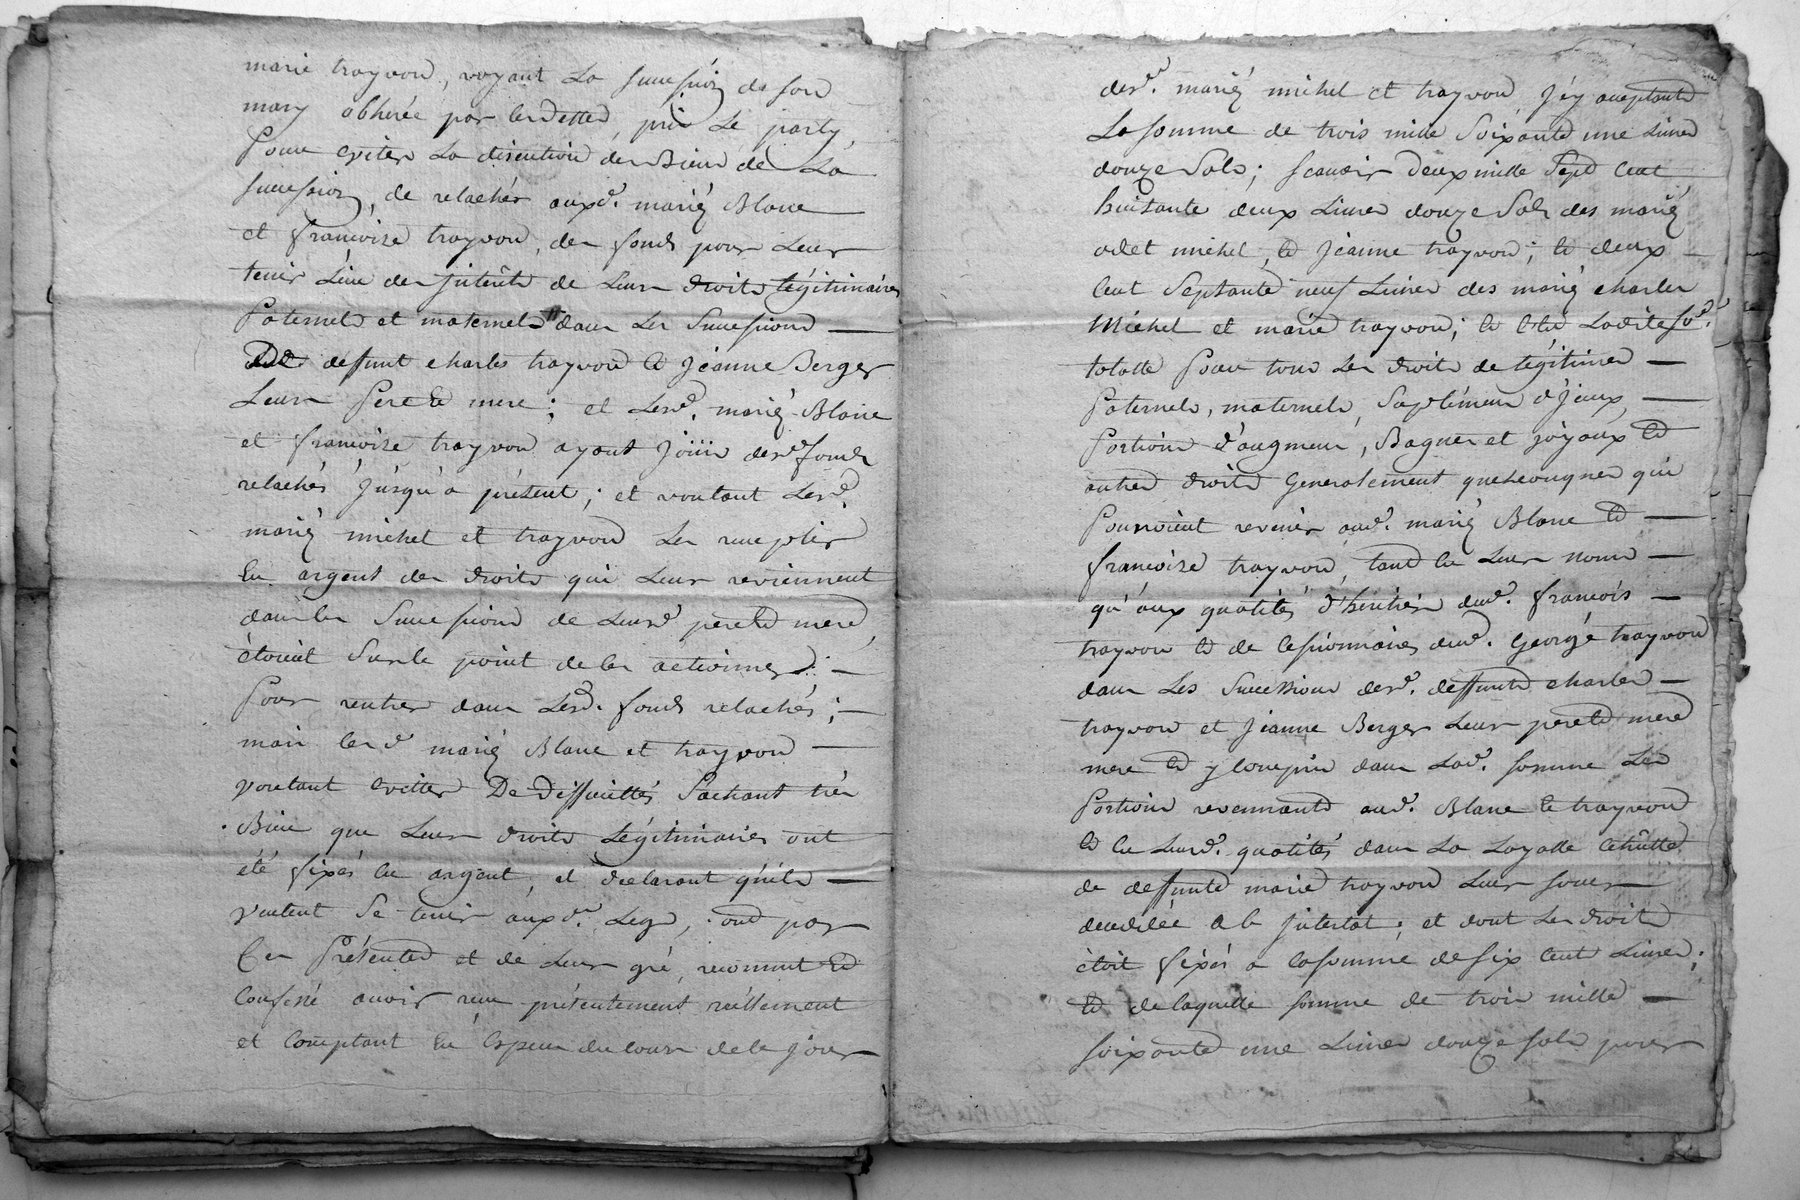 marie trayvou, voyant La succession de son
mary obherée par les dettes, prit Le party,
Pour eviter La discution des Biens de La
succession, de relacher auxd. mariés Blanc
et francoise trayvou, des fonds pour Leur
tenir Lieu des jnterêts de Leurs droits Légitimaires
Paternels et maternels dans Les Successions
De deffunt charles trayvou et Jeanne Berger
Leurs Pere et mere; et Lesd. mariés Blanc
et francoise trayvou ayant Joüii desd fonds
relachés jusqu'a présent; et voulant Lesd.
mariés michel et trayvou Les
En argent des droits qui Leurs reviennent
dans les Successions de Leursd pere et mere,
étoient Sur le point de les actionner
Pour rentrer dans Lesd. fonds relachés;
mais lesd mariés Blanc et trayvou
voulant evitter De Difficultés Sachant très
Bien que Leurs droits Légitimaires ont
été fixés en argent, et declarant qu'ils
veulent Se tenir auxd. Legs, ont par
Ces Présentes et de Leurs gré, reconnut et
Confessé avoir reçu présentement réellement
et Comptant En Espece du cours de ce jour
desd. mariés michel et trayvou, j'cy aceptants
La somme de trois mille Soixante une Livres
douze Sols; scavoir deux mille Sept Cent
huitante deux Livres douze Sols des mariés
odet michel, et Jeanne trayvou; et deux
Cent Septante neuf Livres des mariés charles
Michel et marie trayvou; et c'est Ladite so.e
totalle Pour tous Les droits de légitimes
Paternels, maternels, Suplément d'Jceux,
Portion d'augment, Bagues et joyaux et
autres droits Generalement quelconques qui
Pourroient revenir auxd. mariés Blanc et
francoise trayvou, tant en Leurs noms
qu'aux qualités d'heritiers dud. francois
trayvou et de cessionnaires dud. George trayvou
dans Les Successions desd. deffunts charles
trayvou et Jeanne Berger Leurs pere et mere
mere et y compris dans Lad. somme Les
Portions revennants aud. Blanc et trayvou
et en Leursd. qualités dans La Layalle échutte
de deffunte marie trayvou Leur soeur
decedée a b jntestat; et dont Les droits
étoit fixés a la somme de six Cent Livres;
et de laquelle somme de trois mille
soixante une Livres douze sols pour